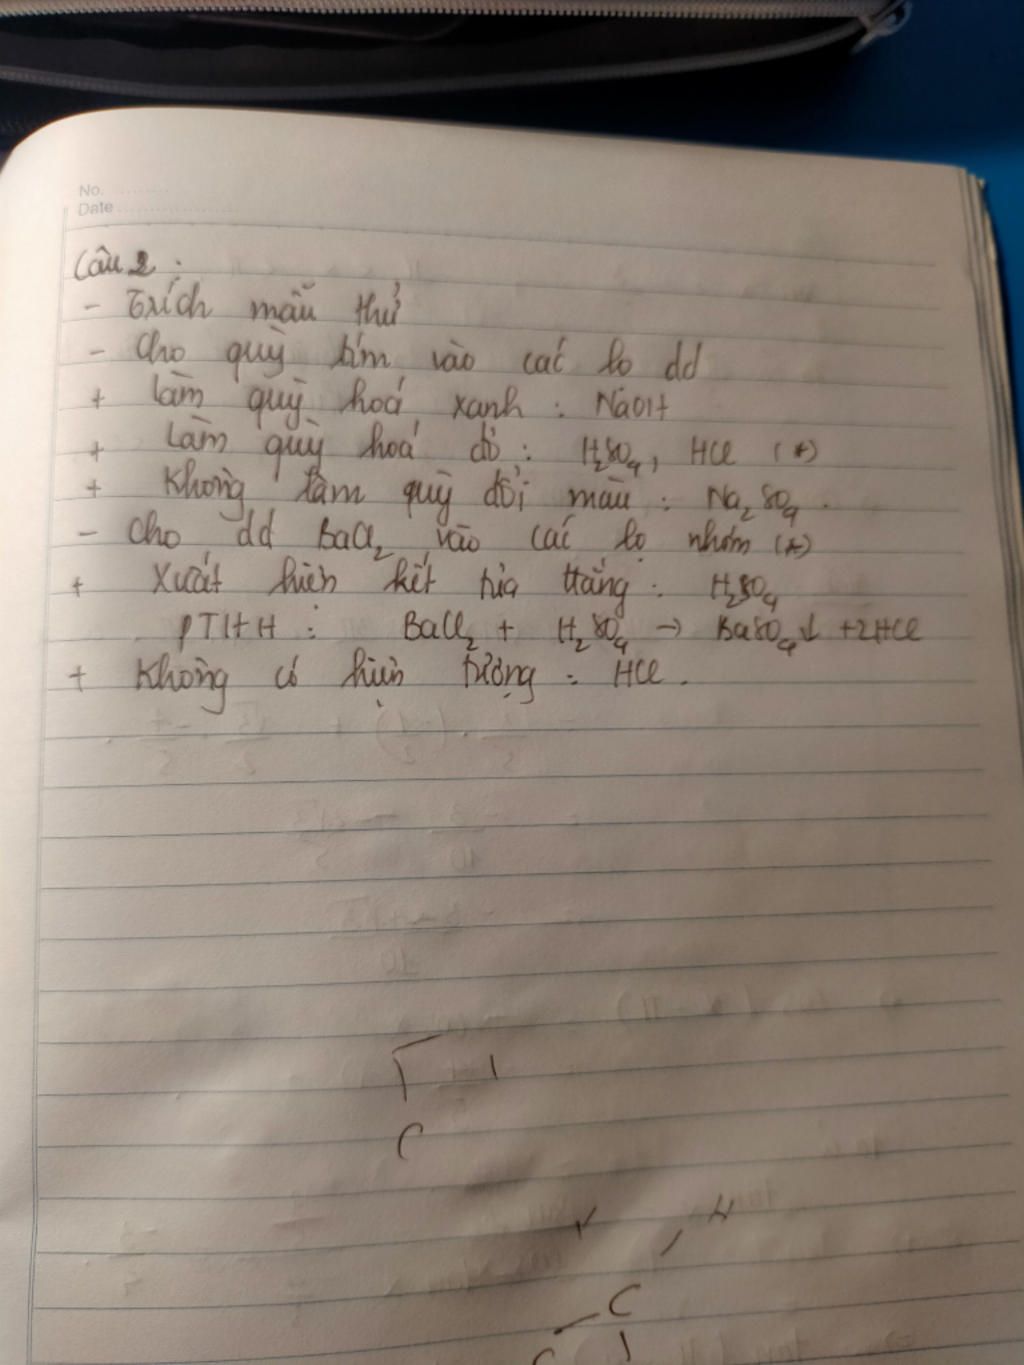 No. ..........
Date ....................
Câu 2 :
- Trích mẫu thử
- Cho quỳ tím vào các lọ dd
+ Làm quỳ hoá xanh : NaOH
+ Làm quỳ hoá đỏ : H₂SO₄, HCl (*)
+ Không làm quỳ đổi màu : Na₂SO₄.
- Cho dd BaCl₂ vào các lọ nhóm (*)
+ Xuất hiện kết tủa trắng : H₂SO₄
PTHH : BaCl₂ + H₂SO₄ → BaSO₄↓ + 2HCl
+ Không có hiện tượng : HCl.
C
H
C
C